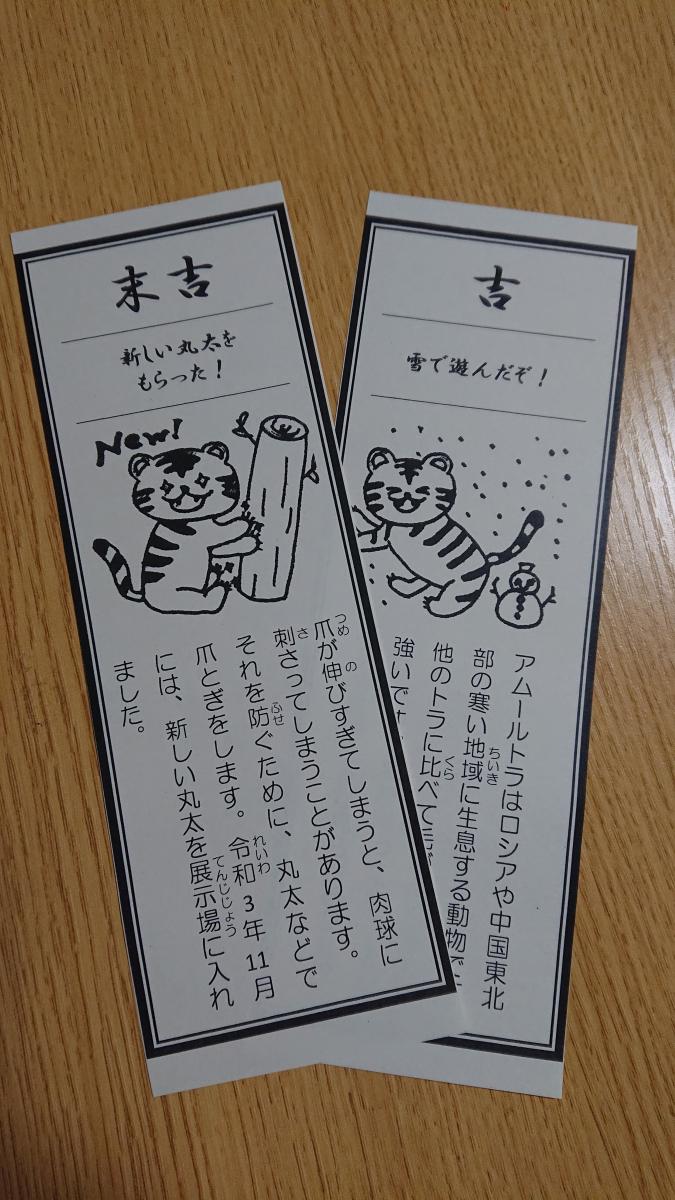 末吉
新しい丸太を
もらった！
New!
爪が伸びすぎてしまうと、肉球に
刺さってしまうことがあります。
それを防ぐために、丸太などで
爪とぎをします。令和3年11月
には、新しい丸太を展示場に入れ
ました。
つめ
の
さ
ふせ
れいわ
てんじじょう
吉
雪で遊んだぞ！
アムールトラはロシアや中国東北
部の寒い地域に生息する動物で
他のトラに比べて
強いで
ちいき
くら